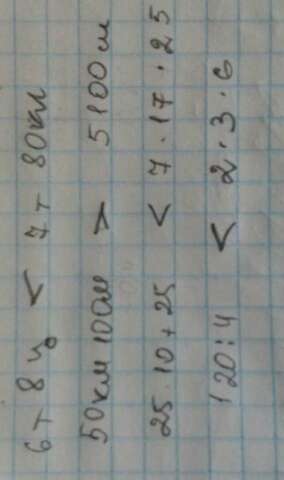 6т 8ц < 7т 80кг
50км 100м > 5100м
25 · 10 + 25 < 7 · 17 · 25
120 : 4 < 2 · 3 · 6